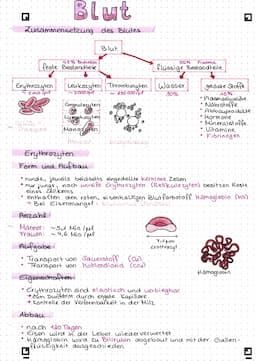 Blut
Zusammensetzung des Blutes
Blut
feste Bestandteile
flüssige Bestandteile
Erythrozyten
Leukozyten
Thrombozyten
Wasser
gelöste Stoffe
90%
Granulozyten
Lymphozyten
Monozyten
• Plasmaeiweiße
• Nährstoffe
• Abbauprodukte
• Hormone
• Mineralstoffe
• Vitamine
• Fibrinogen
Erythrozyten
Form und Aufbau
• runde, jeweils beidseits eingedellte kernlose Zellen
• nur junge, noch unreife Erythrozyten (Retikulozyten) besitzen Reste
eines Zellkerns
• enthalten den roten, eisenhaltigen Blutfarbstoff Hämoglobin (Hb)
• Bei Eisenmangel
Anzahl
Männer:
Frauen:
Aufgabe
• Transport von Sauerstoff (O2)
• Transport von Kohlendioxid (CO2)
Hämoglobin
Eigenschaften
• Erythrozyten sind elastisch und verbiegbar
zum Durchtritt durch enge Kapillare
Kontrolle der Verformbarkeit in der Milz
Abbau
• nach 120 Tagen
• Eisen wird in der Leber wiederverwertet
• Hämoglobin wird zu Bilirubin abgebaut und mit der Gallen-
flüssigkeit ausgeschieden